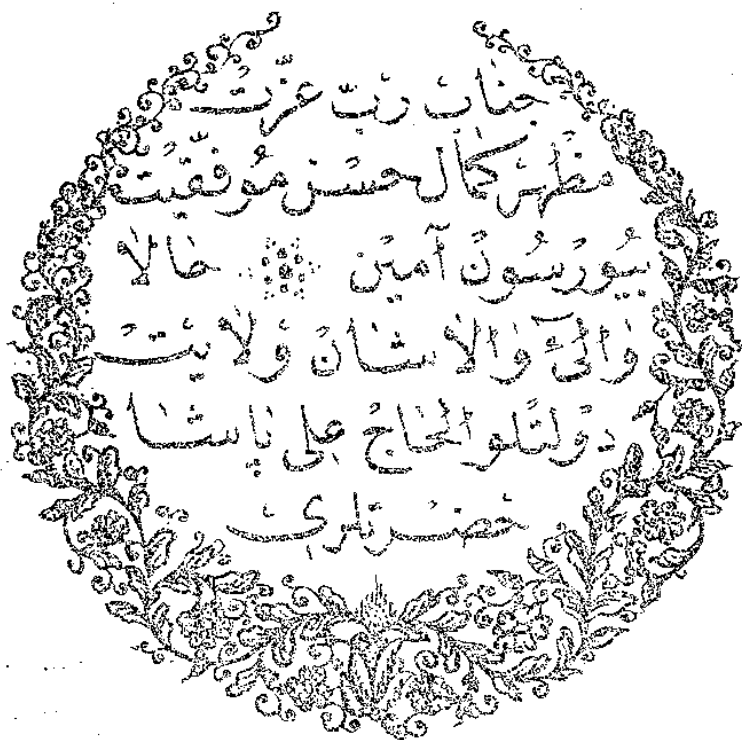 جناب ربّ عزّت
مظهر كمال حسن موفّقيت
بيورسون آمين حالا
والئ والاشان ولايت
دولتلو الحاج على پاشا
حضرتلرى